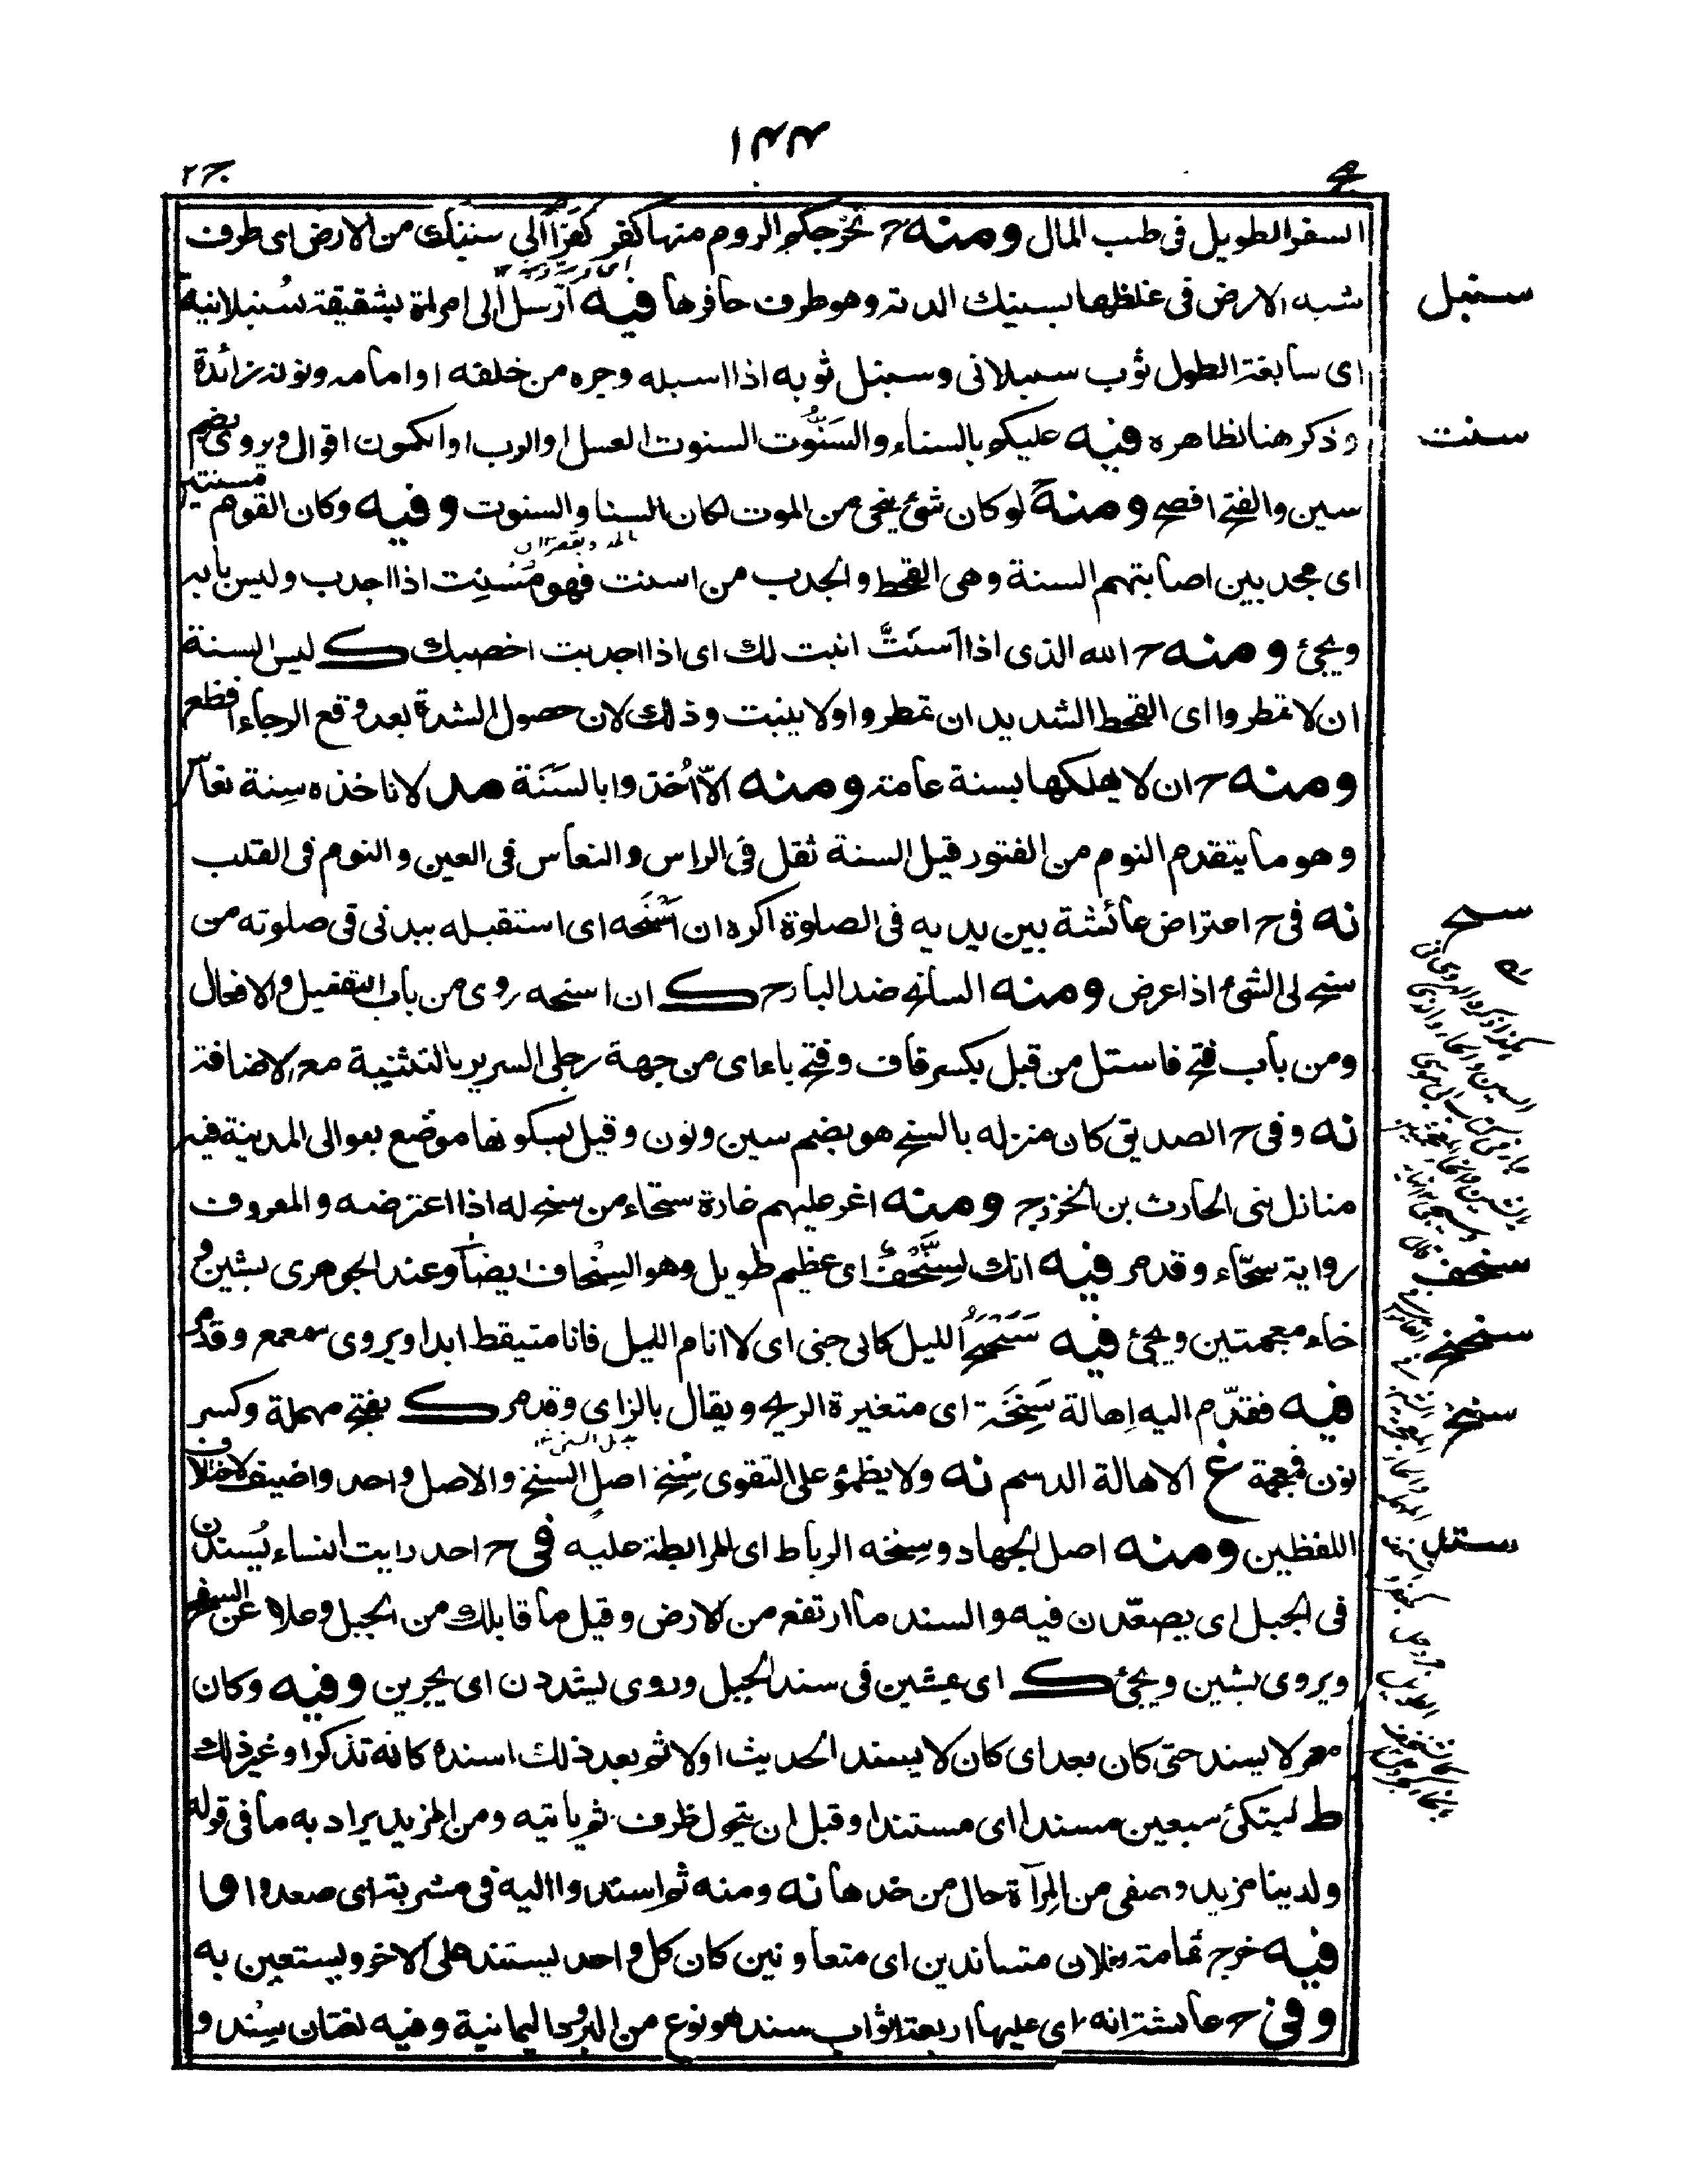 ج ٢
السفر الطويل فى طلب المال ومنه ح تخرجكم الروم منها كفرا كفرا الى سنبك من الارض اى طرف
شبه الارض فى غلظها بسنبك الدابة وهو طرف حافرها فيه ارسل الى امراة بشقيقة سُنبلانية
سنبل
اى سابغة الطول ثوب سنبلانى وسنبل ثوبه اذا اسبله وجره من خلفه او امامه ونونه زائدة
وذكر هنا لظاهره فيه عليكم بالسناء والسَنُّوت السنوت العسل او الرب او الكمون اقوال ويروى بضم
سنت
سين والفتح افصح ومنه لو كان شئ ينجى من الموت لكان السنا والسنوت وفيه وكان القوم مسنتين
بالمد وبقصر
اى مجدبين اصابتهم السنة وهى القحط والجدب من اسنت فهو مُسْنِت اذا اجدب وليس بابه
ويجئ ومنه ح الله الذى اذا اسنَتَّ انبت لك اى اذا اجدبت اخصبك ك ليس السنة
ان لا تمطروا اى القحط الشديد ان تمطروا ولا ينبت وذلك لان حصول الشدة بعد وقع الرجاء افظع
ومنه ح ان لا يهلكها بسنة عامة ومنه الّا اُخذوا بالسَنَة مد لا تاخذه سِنة نعاس
وهو ما يتقدم النوم من الفتور قيل السنة ثقل فى الراس والنعاس فى العين والنوم فى القلب
نه فى ح اعتراض عائشة بين يديه فى الصلوة اكره ان اَسْنَحه اى استقبله ببدنى فى صلوته من
سنح
سنح لى الشئ اذا عرض ومنه السانح ضد البارح ك ان اسنحه روى من باب التفعيل والافعال
ومن باب فتح فاستل من قبل بكسر قاف وفتح باء اى من جهة رجلى السرير بالتثنية مع الاضافة
نه وفى ح الصديق كان منزله بالسنح هو بضم سين ونون وقيل بسكونها موضع بعوالى المدينة فيه
منازل بنى الحارث بن الخزرج ومنه اغر عليهم غارة سنحاء من سنح له اذا اعترضه والمعروف
رواية سحّاء وقد مر فيه انك لسِنَّحْف اى عظيم طويل وهو السِنْحاف ايضا وعند الجوهرى بشين و
سنحف
خاء معجمتين ويجئ فيه سَنَحْنَحُ الليل كانى جنى اى لا انام الليل فانا متيقظ ابدا ويروى سمعمع وقد مر
سنحنح
فيه فقدّم اليه اِهالة سَنِخَة اى متغيرة الريح ويقال بالزاى وقد مر ك بفتح مهملة وكسر
سنخ
نون فمعجمة غ الاهالة الدسم نه ولا يظمؤ على التقوى سِنْخ اصل السنخ والاصل واحد واضيف لاختلاف
اللفظين ومنه اصل الجهاد وسِنخه الرباط اى المرابطة عليه فى ح احد رايت النساء يُسنِدن
سند
فى الجبل اى يصعّدن فيه والسند ما ارتفع من الارض وقيل ما قابلك من الجبل وعلا عن السفح
ويروى بشين ويجئ ك اى يمشين فى سند الجبل وروى يشددن اى يجرين وفيه وكان
معمر لا يسند حتى كان بعد اى كان لا يسند الحديث اولا ثم بعد ذلك اسنده كانه تذكر او غير ذلك
ط ليتكئ سبعين مسندا اى مستندا وقبل ان يتحول ظرف ثم ياتيه ومن المزيد يراد به ما فى قوله
ولدينا مزيد وصفى من المراة حال من خدها نه ومنه ثم اسندوا اليه فى مشربة اى صعدوا و
فيه خرج ثمامة وفلان متساندين اى متعاونين كان كل واحد يستند على الاخر ويستعين به
وفى ح عائشة انه راى عليها اربعة اثواب سند هو نوع من البرود اليمانية وفيه لغتان سِنْد و